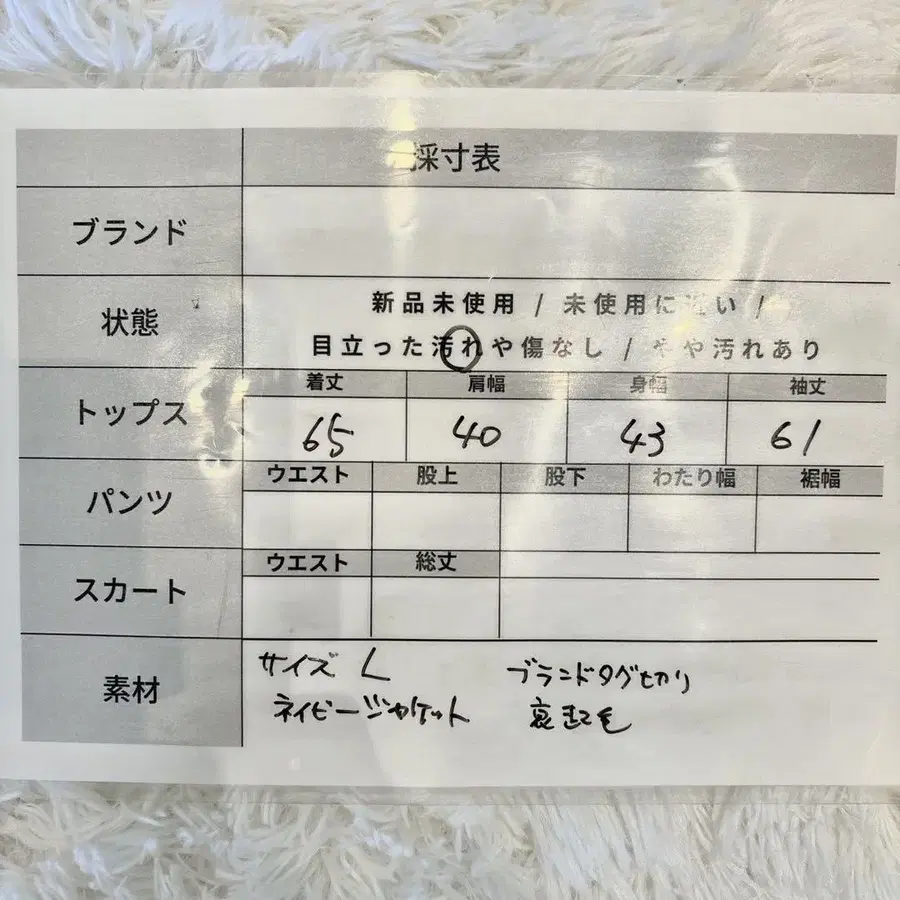 採寸表
ブランド
状態
新品未使用 / 未使用に近い /
目立った汚れや傷なし / やや汚れあり
トップス
着丈 肩幅 身幅 袖丈
65 40 43 61
パンツ
ウエスト 股上 股下 わたり幅 裾幅
スカート
ウエスト 総丈
素材
サイズ L ブランドタグ切り
ネイビージャケット 裏起毛